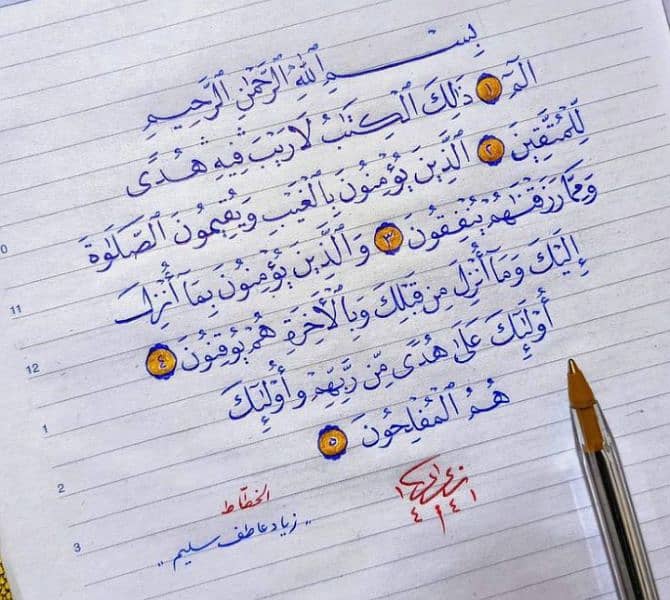 بِسْمِ اللَّهِ الرَّحْمَٰنِ الرَّحِيمِ
الٓمٓ ١ ذَٰلِكَ الْكِتَابُ لَا رَيْبَ فِيهِ هُدًى
لِّلْمُتَّقِينَ ٢ الَّذِينَ يُؤْمِنُونَ بِالْغَيْبِ وَيُقِيمُونَ الصَّلَاوٰةَ
وَمِمَّا رَزَقْنَٰهُمْ يُنفِقُونَ ٣ وَالَّذِينَ يُؤْمِنُونَ بِمَآ أُنزِلَ
إِلَيْكَ وَمَآ أُنزِلَ مِن قَبْلِكَ وَبِالْأَخِرَةِ هُمْ يُوقِنُونَ ٤
أُوْلَٰٓئِكَ عَلَىٰ هُدًى مِّن رَّبِّهِمْ وَأُوْلَٰٓئِكَ
هُمُ الْمُفْلِحُونَ ٥
الخطاط
"زياد عاطف سليم"
١٤٤١
0
11
12
1
2
3